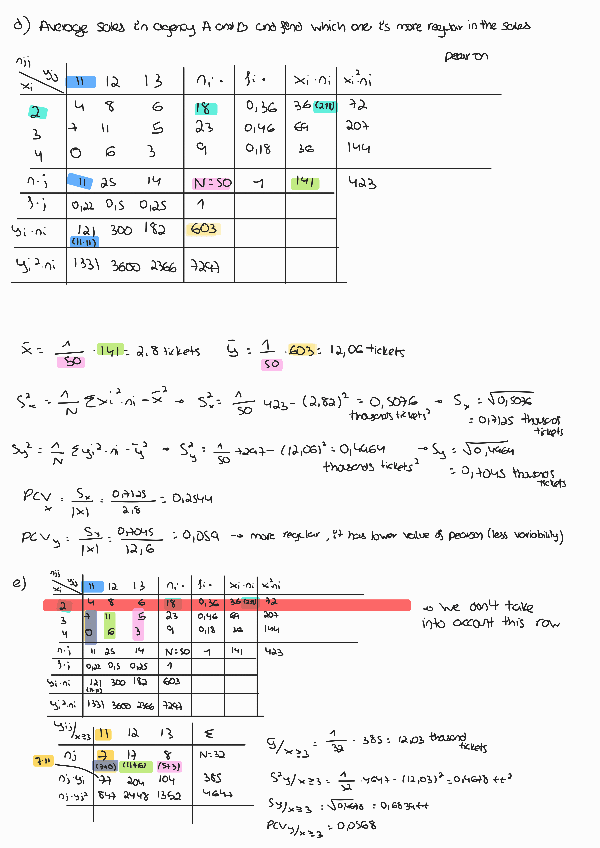 d) Average sales in agency A and B and find which one is more regular in the sales
pearson
nij yj 11 12 13 ni· fi· xi·ni xi²·ni
xi
2 4 8 6 18 0,36 36 (2·18) 72
3 7 11 5 23 0,46 69 207
4 0 6 3 9 0,18 36 144
n·j 11 25 14 N=50 1 141 423
f·j 0,22 0,5 0,25 1
yi·ni 121 300 182 603
(11·11)
yi²·ni 1331 3600 2366 7297
x̄ = 1/50 · 141 = 2,8 tickets ȳ = 1/50 · 603 = 12,06 tickets
S²x = 1/N Σxi²·ni - x̄² → S²x = 1/50 423 - (2,82)² = 0,5076 → Sx = √0,5076
thousands tickets² = 0,7125 thousands tickets
Sy² = 1/N Σyi²·ni - ȳ² → S²y = 1/50 7297 - (12,06)² = 0,4964 → Sy = √0,4964
thousands tickets² = 0,7045 thousands tickets
PCVx = Sx/|x| = 0,7125/2,8 = 0,2544
PCVy = Sx/|x| = 0,7045/12,6 = 0,059 → more regular, it has lower value of pearson (less variability)
e) nij yj 11 12 13 ni· fi· xi·ni xi²·ni
xi
2 4 8 6 18 0,36 36 (2·18) 72
3 7 11 5 23 0,46 69 207
4 0 6 3 9 0,18 36 144
→ we don't take
into account this row
n·j 11 25 14 N=50 1 141 423
f·j 0,22 0,5 0,25 1
yi·ni 121 300 182 603
(11·11)
yi²·ni 1331 3600 2366 7297
yj/x≥3 11 12 13 Σ
nj 7 17 8 N=32
7·11 (7+0) (11+6) (5+3)
nj·yj 77 204 104 385
nj·yj² 847 2448 1352 4647
ȳ/x≥3 = 1/32 · 385 = 12,03 thousand tickets
S²y/x≥3 = 1/32 4647 - (12,03)² = 0,4678 tt²
Sy/x≥3 = √0,4678 = 0,6839 tt
PCVy/x≥3 = 0,0568